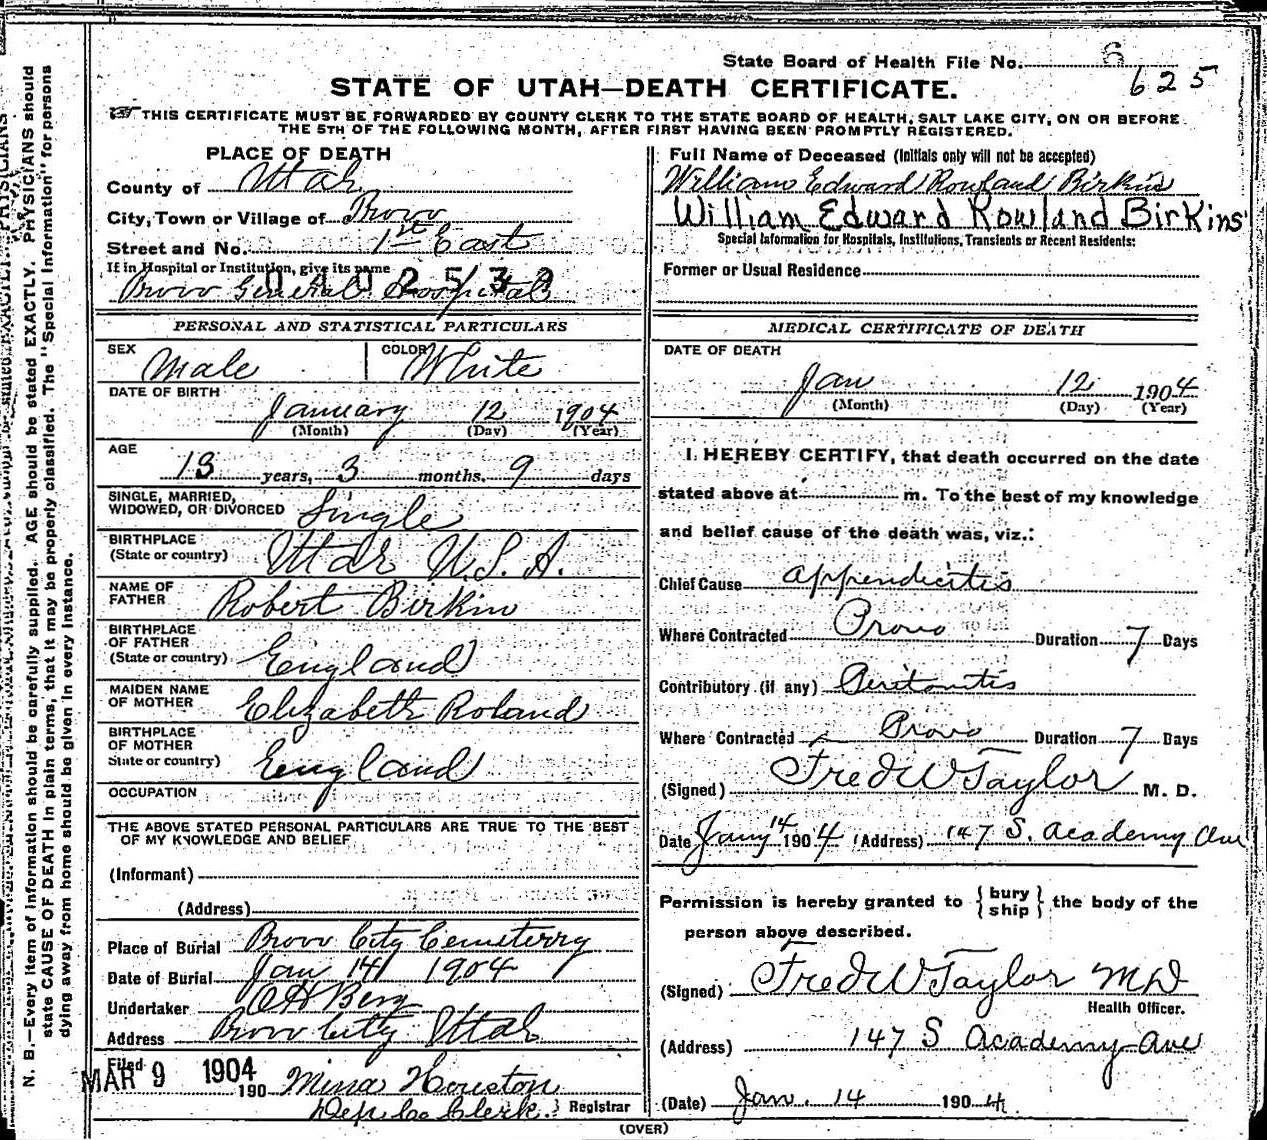 State Board of Health File No. 6
625
STATE OF UTAH—DEATH CERTIFICATE.
THIS CERTIFICATE MUST BE FORWARDED BY COUNTY CLERK TO THE STATE BOARD OF HEALTH, SALT LAKE CITY, ON OR BEFORE
THE 5TH OF THE FOLLOWING MONTH, AFTER FIRST HAVING BEEN PROMPTLY REGISTERED.
PLACE OF DEATH
County of Utah
City, Town or Village of Provo
Street and No. 1st East
If in Hospital or Institution, give its name
Provo General Hospital
PERSONAL AND STATISTICAL PARTICULARS
SEX Male COLOR White
DATE OF BIRTH
January 12 1904
(Month) (Day) (Year)
AGE
13 years, 3 months, 9 days
SINGLE, MARRIED,
WIDOWED, OR DIVORCED Single
BIRTHPLACE
(State or country) Utah U.S.A.
NAME OF
FATHER Robert Birkin
BIRTHPLACE
OF FATHER
(State or country) England
MAIDEN NAME
OF MOTHER Elizabeth Roland
BIRTHPLACE
OF MOTHER
State or country) England
OCCUPATION
THE ABOVE STATED PERSONAL PARTICULARS ARE TRUE TO THE BEST
OF MY KNOWLEDGE AND BELIEF
(Informant)
(Address)
Place of Burial Provo City Cemeterry
Date of Burial Jan 14 1904
Undertaker O H Berg
Address Provo City Utah
Filed
MAR 9 1904 190 Mina Houston
Dep. Co Clerk. Registrar
(OVER)
Full Name of Deceased (Initials only will not be accepted)
William Edward Rowland Birkin
William Edward Rowland Birkins
Special Information for Hospitals, Institutions, Transients or Recent Residents:
Former or Usual Residence
MEDICAL CERTIFICATE OF DEATH
DATE OF DEATH
Jan 12 1904
(Month) (Day) (Year)
I HEREBY CERTIFY, that death occurred on the date
stated above at m. To the best of my knowledge
and belief cause of the death was, viz.:
Chief Cause appendicitis
Where Contracted Provo Duration 7 Days
Contributory (if any) Peritontis
Where Contracted Provo Duration 7 Days
(Signed) Fred W Taylor M. D.
Date Jany 14 1904 (Address) 147 S. Academy Ave
Permission is hereby granted to {bury ship} the body of the
person above described.
(Signed) Fred W Taylor MD
Health Officer.
(Address) 147 S Academy Ave
(Date) Jan. 14 1904
N. B.—Every item of information should be carefully supplied. AGE should be stated EXACTLY. PHYSICIANS should
state CAUSE OF DEATH in plain terms, that it may be properly classified. The "Special Information" for persons
dying away from home should be given in every instance.